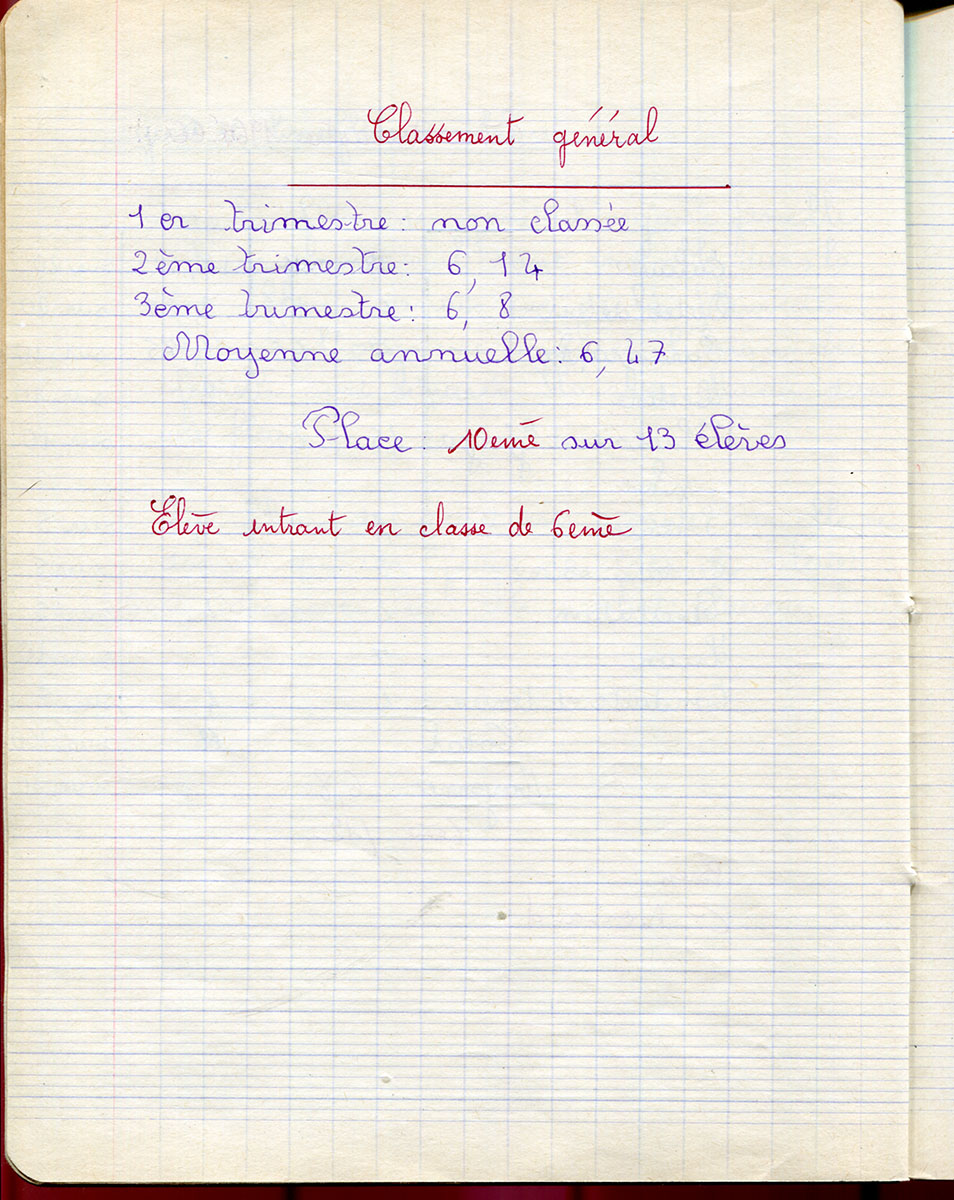 Classement général
1er trimestre: non classée
2ème trimestre: 6,14
3ème trimestre: 6,8
Moyenne annuelle: 6,47
Place: 10eme sur 13 élèves
Elève entrant en classe de 6eme